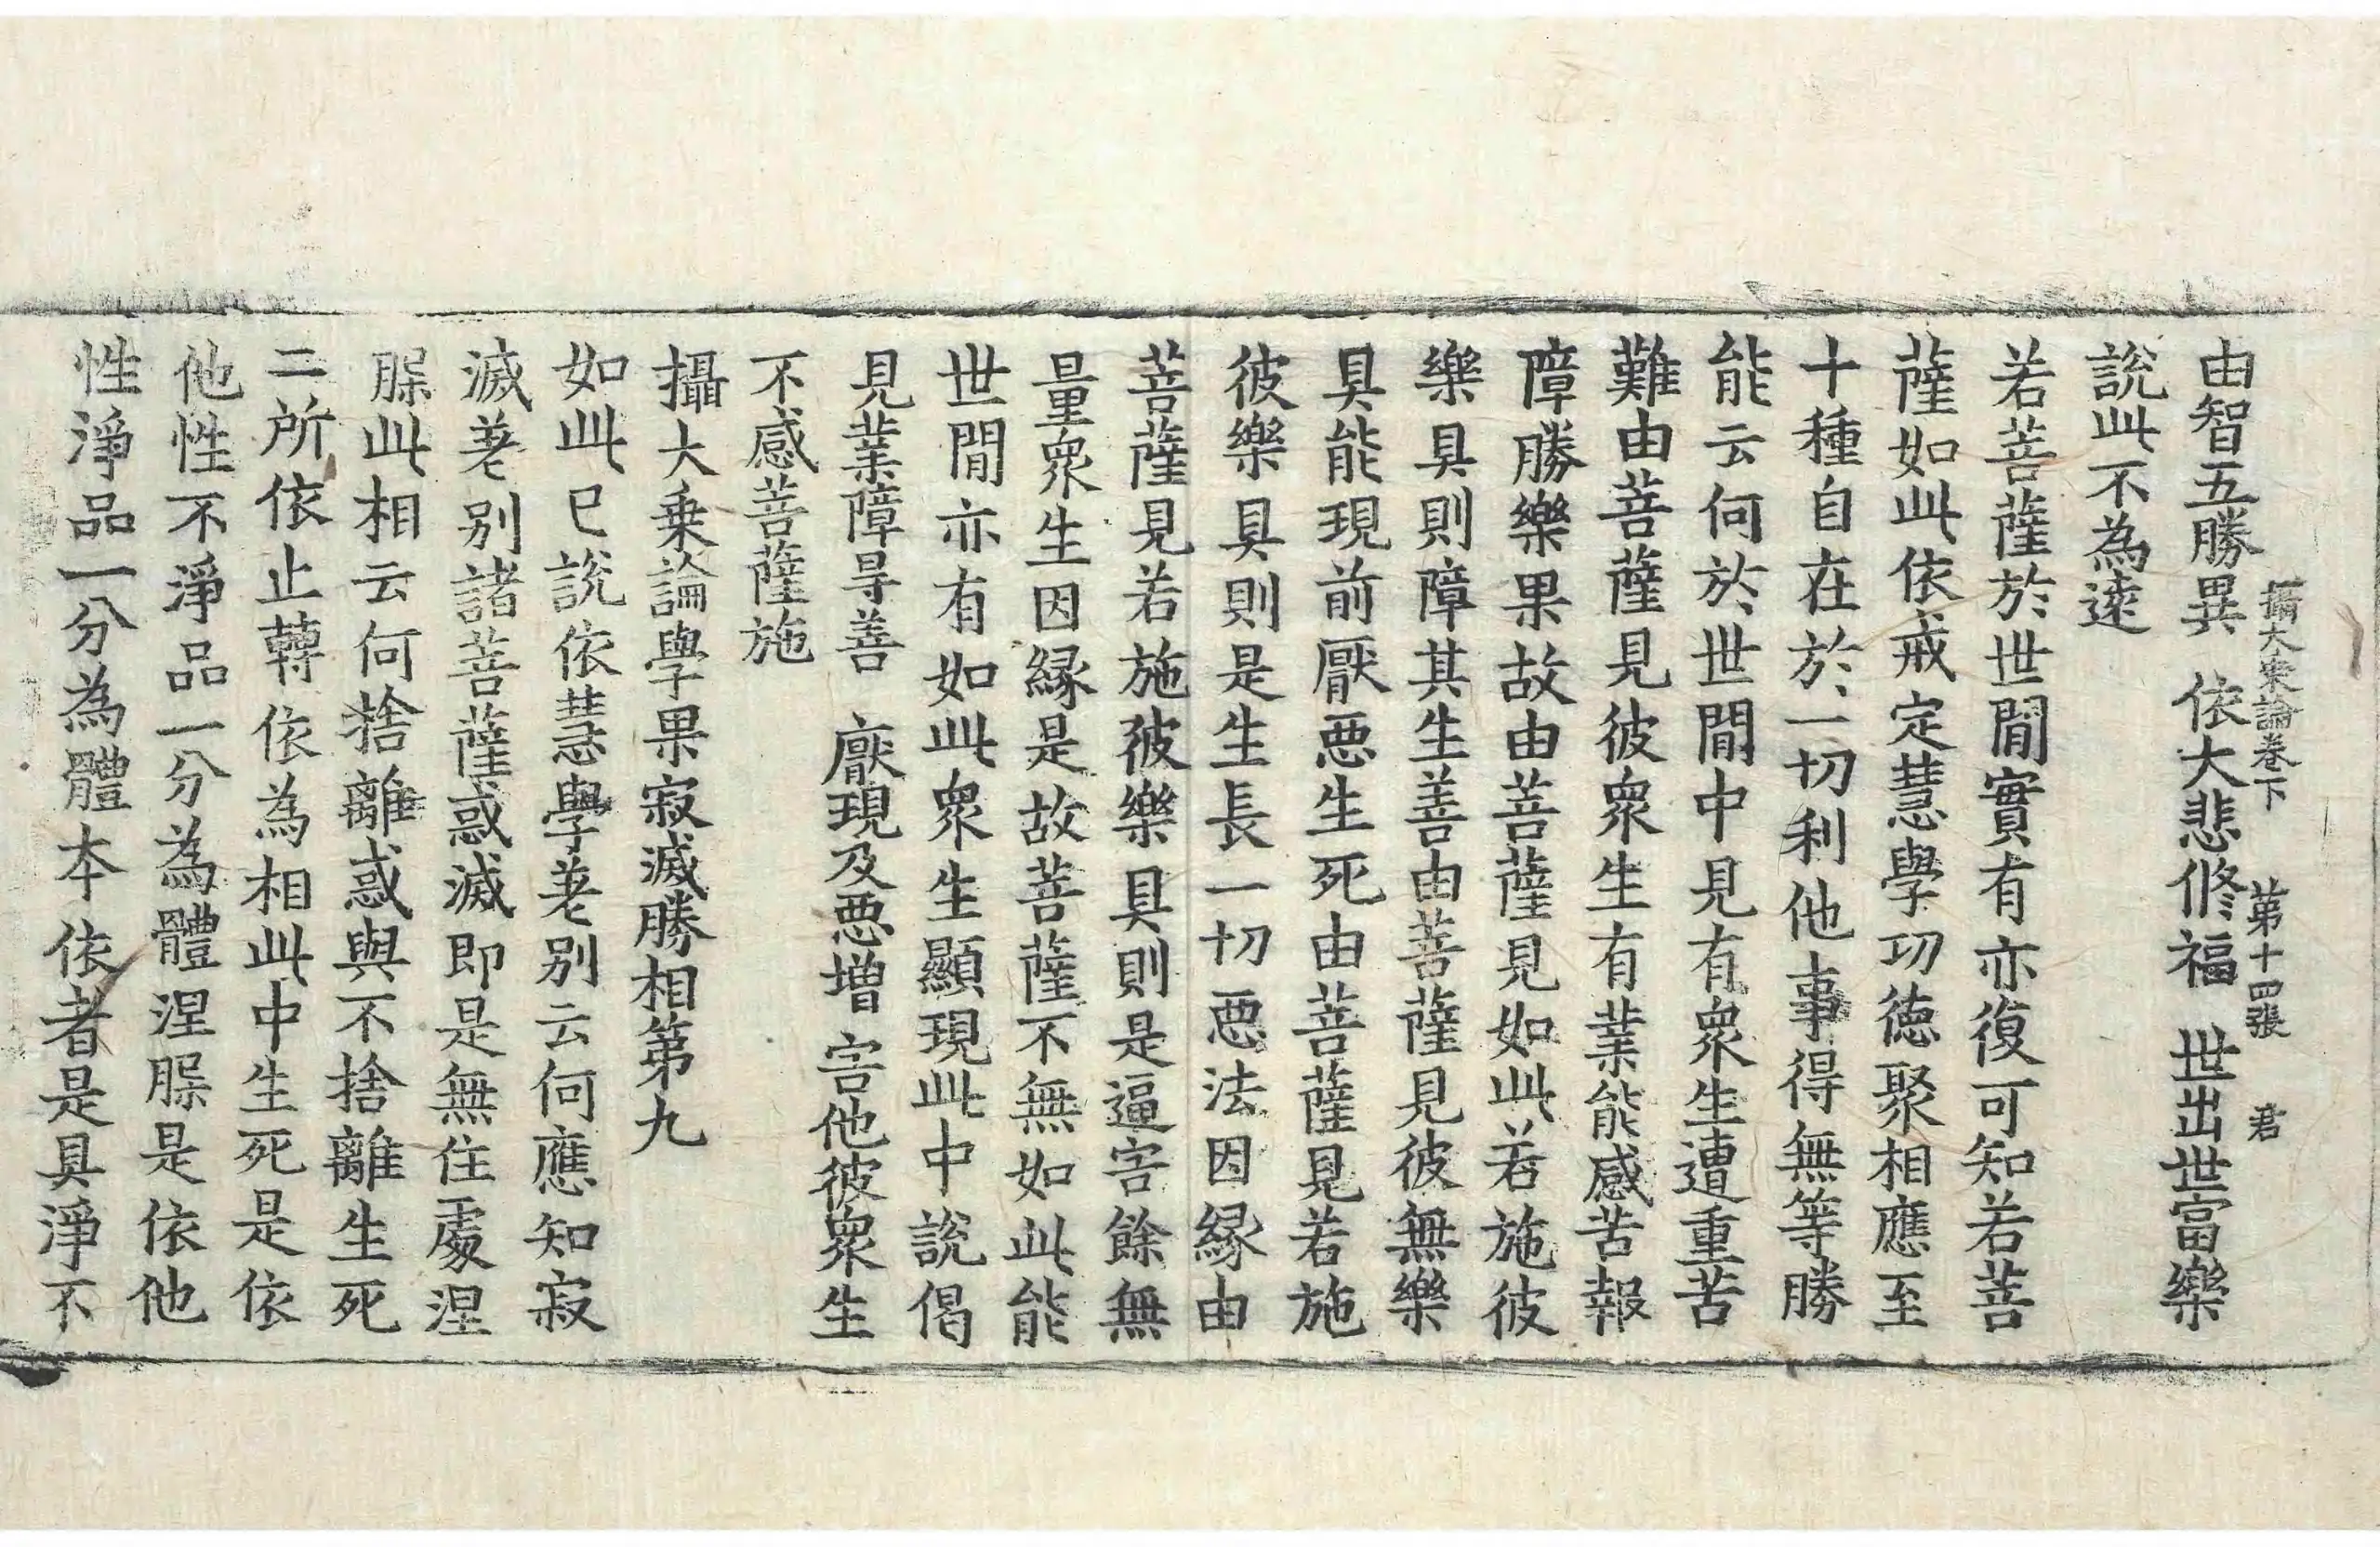 攝大乘論卷下　第十四張　君
由智五勝異　依大悲修福　世出世富樂
說此不為遠
若菩薩於世間實有亦復可知若菩
薩如此依戒定慧學功德聚相應至
十種自在於一切利他事得無等勝
能云何於世間中見有衆生遭重苦
難由菩薩見彼衆生有業能感苦報
障勝樂果故由菩薩見如此若施彼
樂具則障其生善由菩薩見彼無樂
具能現前厭惡生死由菩薩見若施
彼樂具則是生長一切惡法因緣由
菩薩見若施彼樂具則是逼害餘無
量衆生因緣是故菩薩不無如此能
世間亦有如此衆生顯現此中說偈
見業障㝵善　厭現及惡增　害他彼衆生
不感菩薩施
攝大乘論學果寂滅勝相第九
如此已說依慧學差別云何應知寂
滅差別諸菩薩惑滅即是無住處涅
槃此相云何捨離惑與不捨離生死
二所依止轉依為相此中生死是依
他性不淨品一分為體涅槃是依他
性淨品一分為體本依者是具淨不